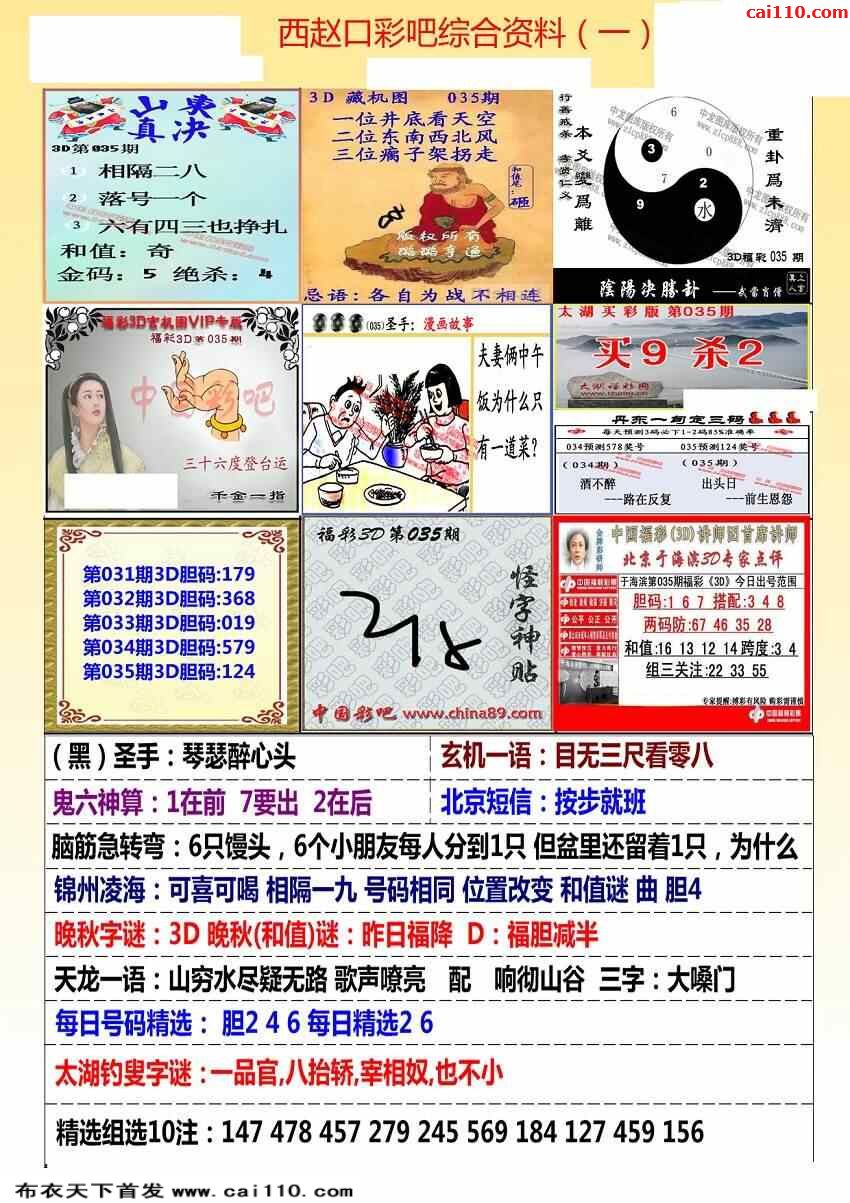 cai110.com
西赵口彩吧综合资料（一）
山奥
真决
3D第035期
1 相隔二八
2 落号一个
3 六有四三也挣扎
和值：奇
金码：5 绝杀：4
3D 藏机图 035期
一位井底看天空
二位东南西北风
三位瘸子架拐走
和值尾：砸
版权所有
忌语：各自为战不相连
行善戒杀 孝贤仁义
本爻变爲離
重卦爲未濟
6
0
3
7
2
9
水
中龙图库版权所有
www.zlcp88.cn
3D福彩 035 期
陰陽决勝卦——武當肖僧
福彩3D玄机图VIP专版
福彩3D第035期
中龙彩吧
三十六度登台运
千金一指
(035)圣手：漫画故事
夫妻俩中午
饭为什么只
有一道菜?
太湖买彩版 第035期
买9 杀2
丹东一句定三码
每天预测3码必下1-2码85%准确率
034预测578奖号 035预测124奖号
(034期) (035期)
酒不醉 出头日
---路在反复 ---前生恩怨
第031期3D胆码:179
第032期3D胆码:368
第033期3D胆码:019
第034期3D胆码:579
第035期3D胆码:124
福彩3D第035期
怪字神贴
中国彩吧 www.china89.com
金牌彩研师
中国福彩(3D)讲师团首席讲师
北京于海滨3D专家点评
中国福利彩票
于海滨第035期福彩《3D》今日出号范围
胆码:1 6 7 搭配:3 4 8
公平 公正 公开
两码防:67 46 35 28
和值:16 13 12 14 跨度:3 4
组三关注:22 33 55
专家提醒:搏彩有风险 购彩需谨慎
中国福利彩票
（黑）圣手：琴瑟醉心头 玄机一语：目无三尺看零八
鬼六神算：1在前 7要出 2在后 北京短信：按步就班
脑筋急转弯：6只馒头，6个小朋友每人分到1只 但盆里还留着1只，为什么
锦州凌海：可喜可喝 相隔一九 号码相同 位置改变 和值谜 曲 胆4
晚秋字谜：3D 晚秋(和值)谜：昨日福降 D：福胆减半
天龙一语：山穷水尽疑无路 歌声嘹亮 配 响彻山谷 三字：大嗓门
每日号码精选： 胆2 4 6 每日精选2 6
太湖钓叟字谜：一品官,八抬轿,宰相奴,也不小
精选组选10注：147 478 457 279 245 569 184 127 459 156
布衣天下首发 www.cai110.com